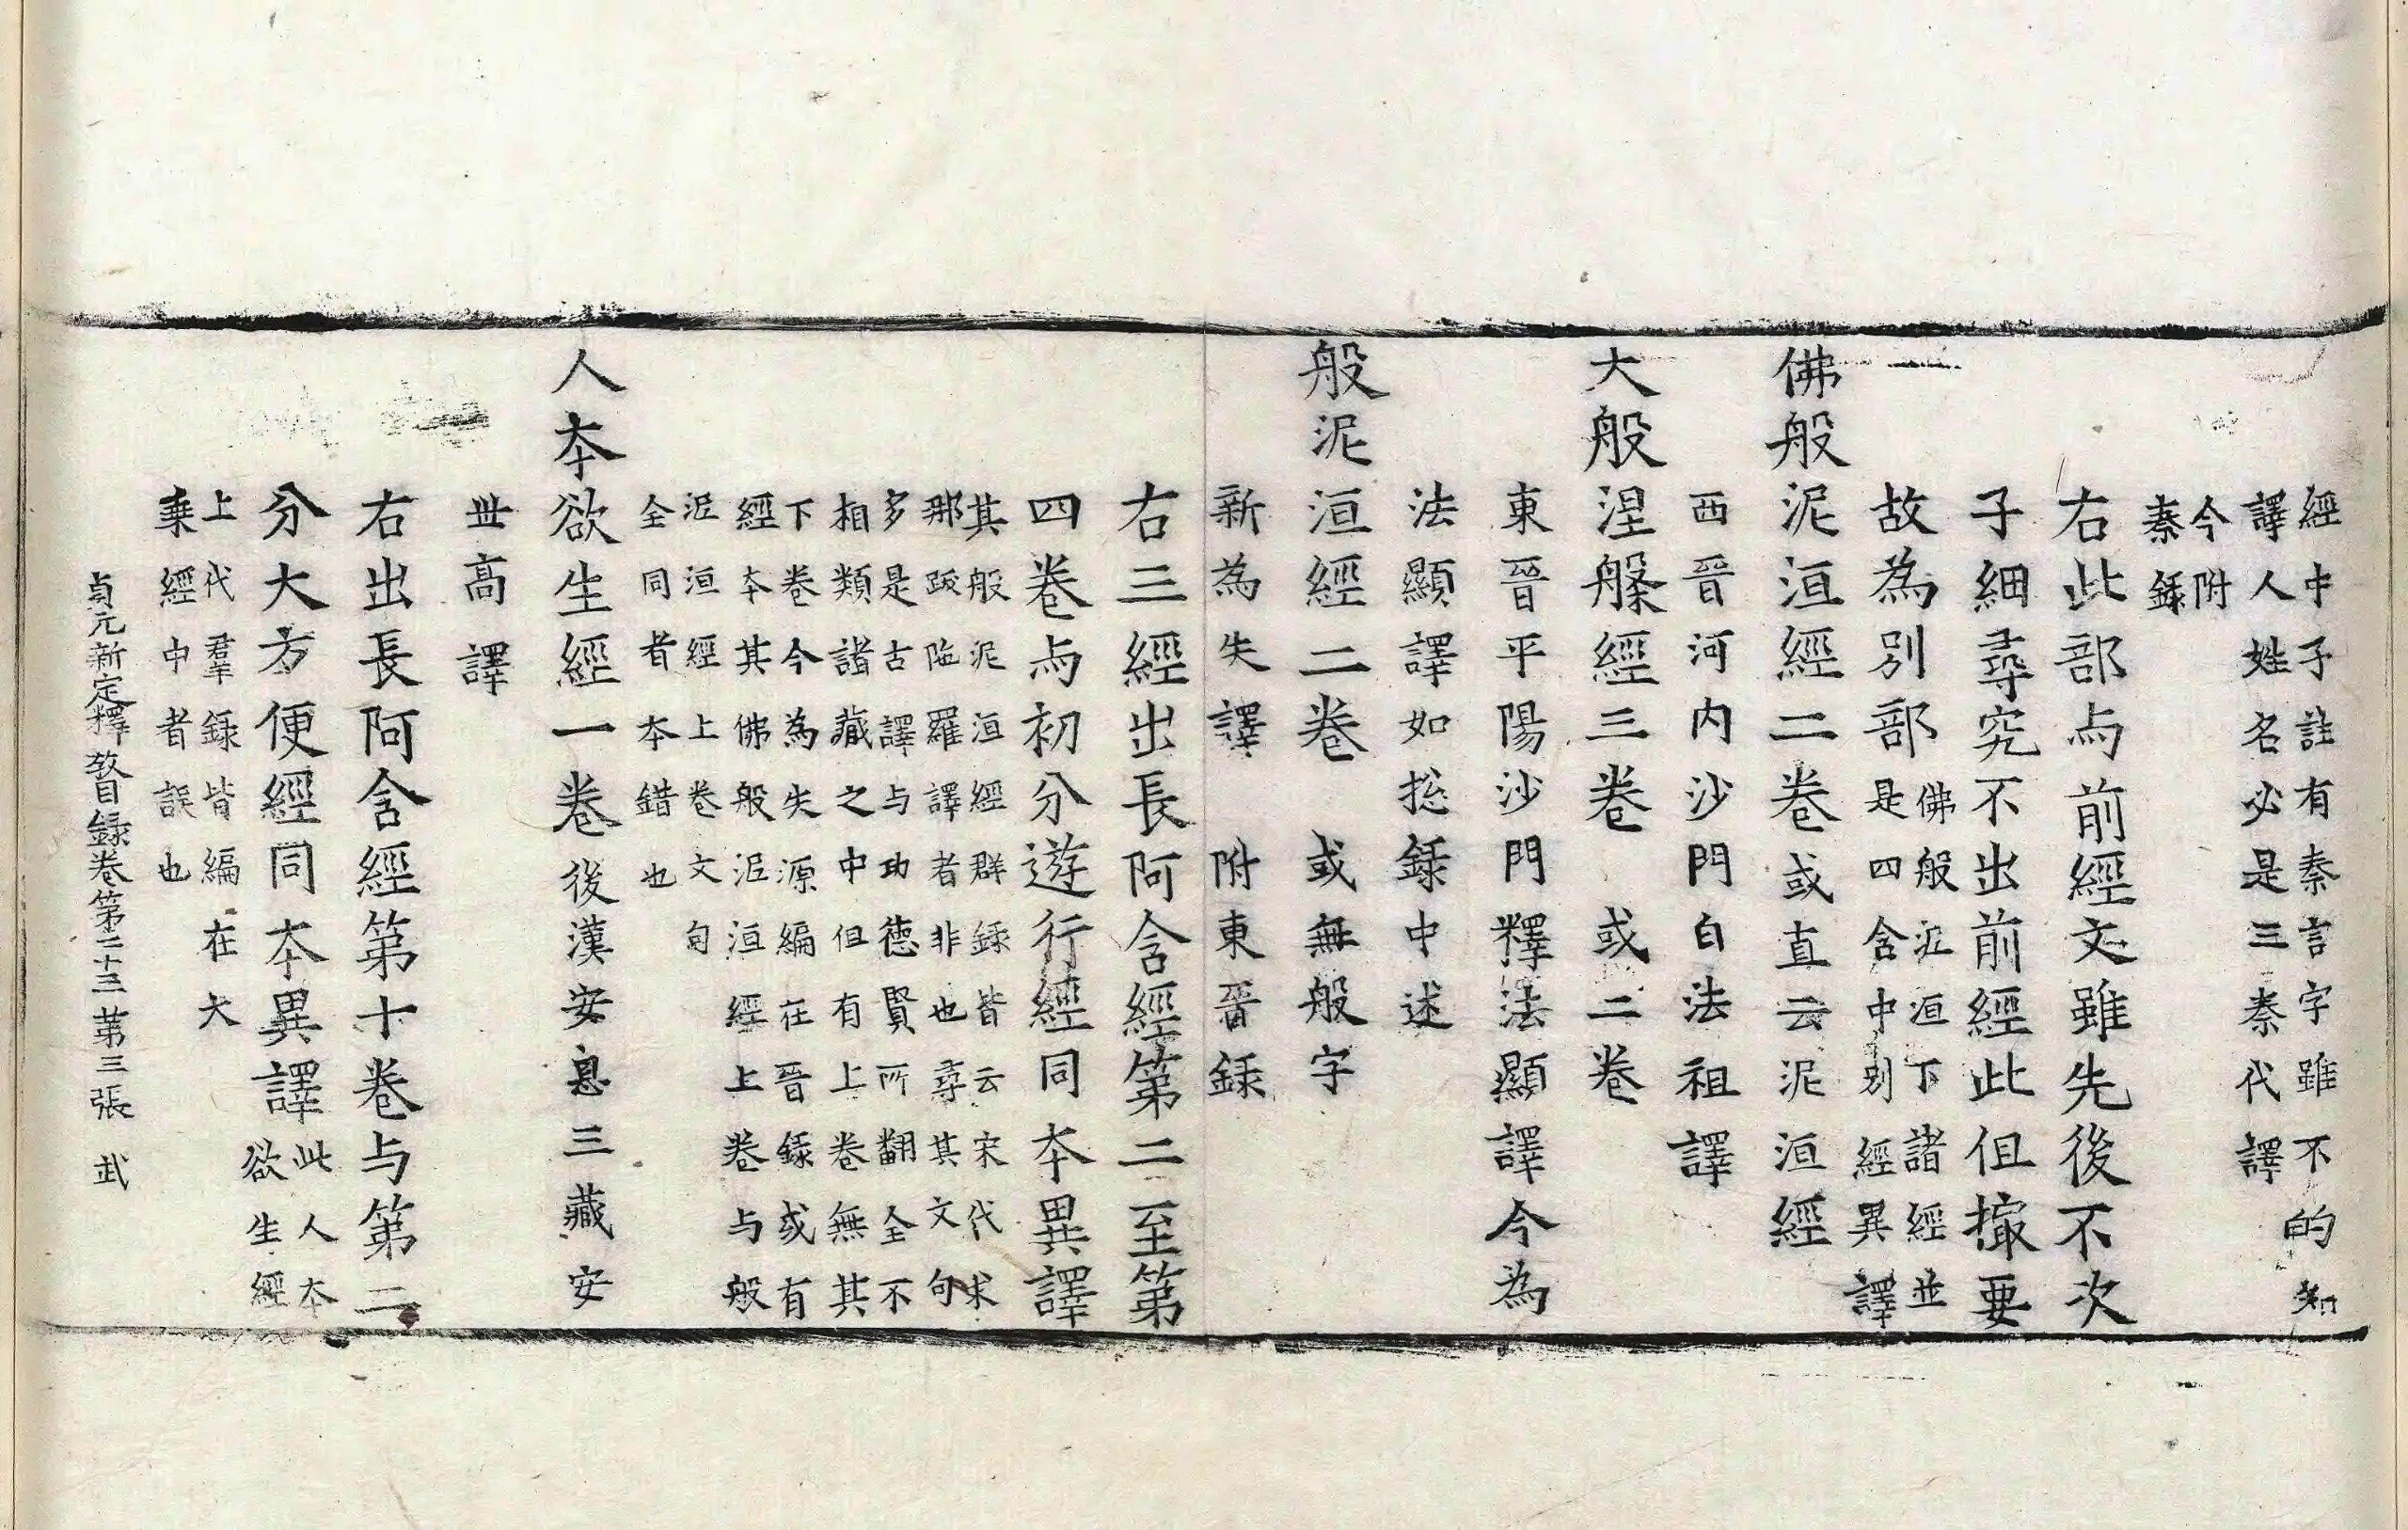 經中子註有秦言字雖不的知
譯人姓名必是三秦代譯
今附
秦録
右此部与前經文雖先後不次
子細尋究不出前經此但撮要
故為別部
佛般泥洹下諸經並
是四含中別經異譯
佛般泥洹經二卷或直云泥洹經
西晉河内沙門白法祖譯
大般涅槃經三卷 或二卷
東晉平陽沙門釋法顯譯今為
法顯譯如捴録中述
般泥洹經二卷 或無般字
新為失譯 附東晉録
右三經出長阿含經第二至第
四卷与初分遊行經同本異譯
其般泥洹經群録皆云宋代求
那跋陁羅譯者非也尋其文句
多是古譯与功德賢所翻全不
相類諸藏之中但有上卷無其
下卷今為失源編在晉録或有
經本其佛般泥洹經上卷与般
泥洹經上卷文句
全同者本錯也
人本欲生經一卷後漢安息三藏安
世高譯
右出長阿含經第十卷与第二
分大方便經同本異譯
此人本
欲生經
上代羣録皆編在大
乗經中者誤也
貞元新定釋教目録卷第三十三 第三張 武